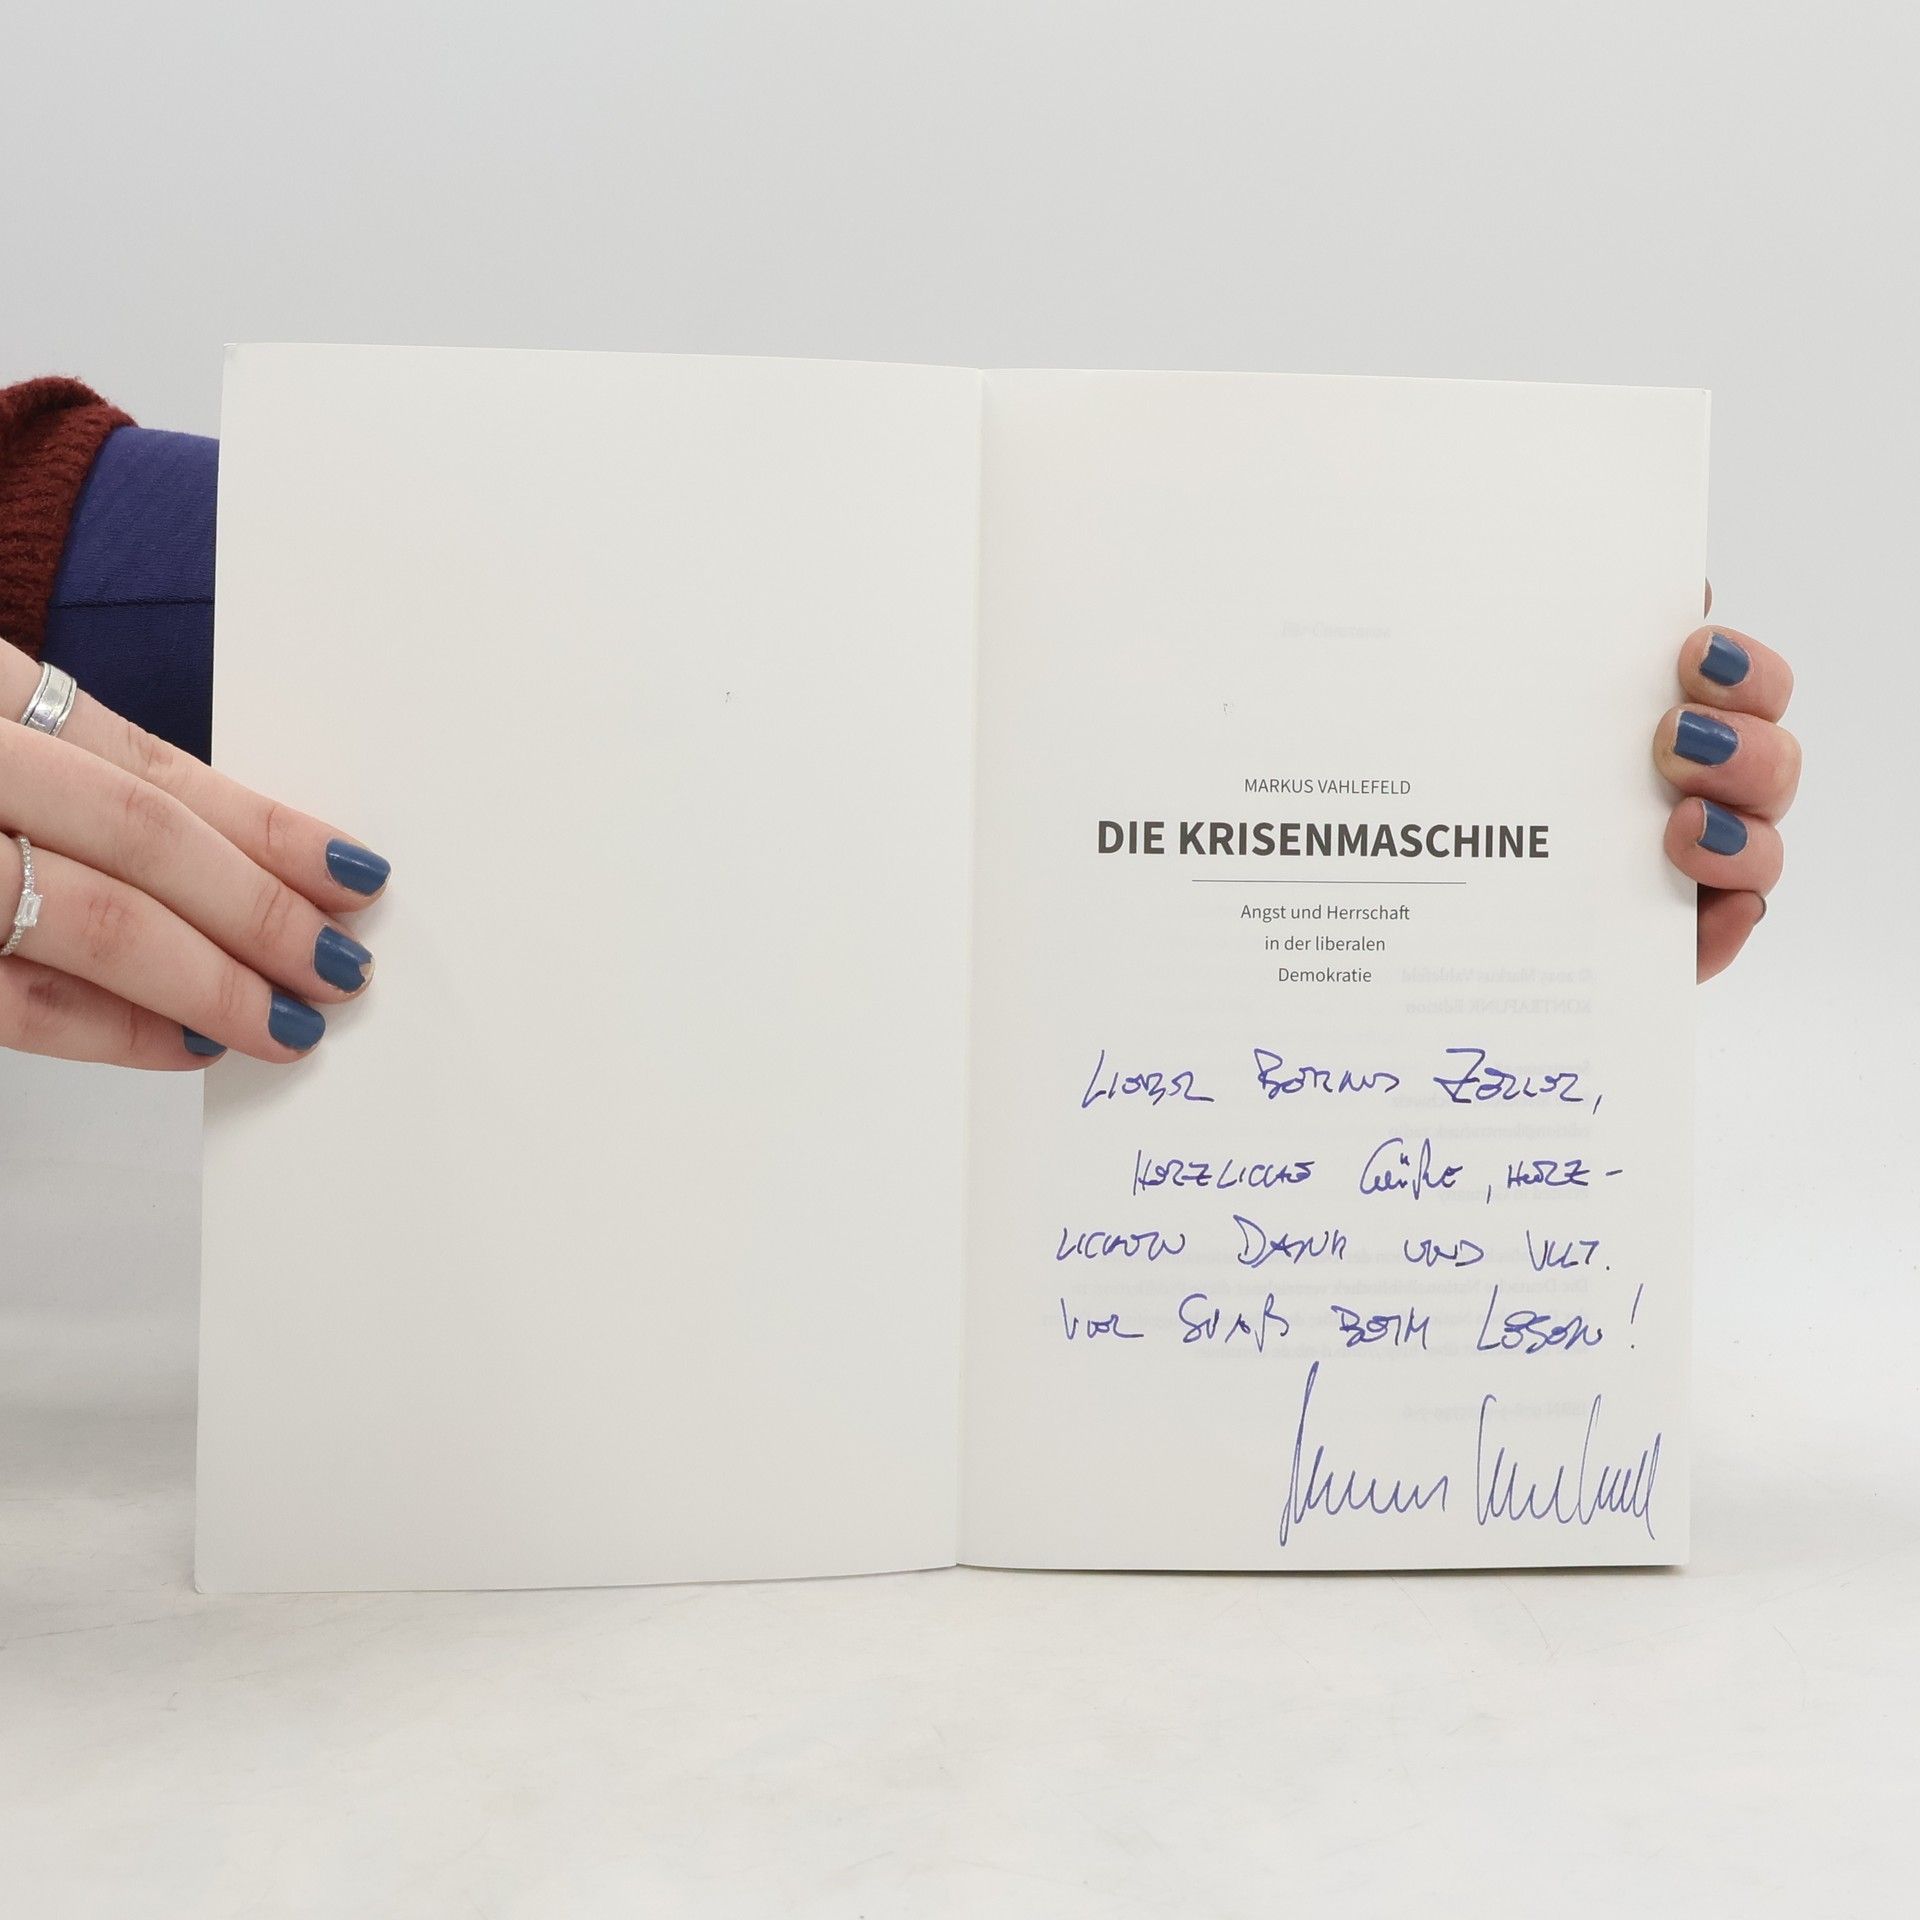 MARKUS VAHLEFELD
DIE KRISENMASCHINE
Angst und Herrschaft
in der liberalen
Demokratie
LIEBER BERND ZELLER,
HERZLICHE Grüße, HERZ-
LICHEN DANK UND VLLT.
VIEL SPAß BEIM LESEN!